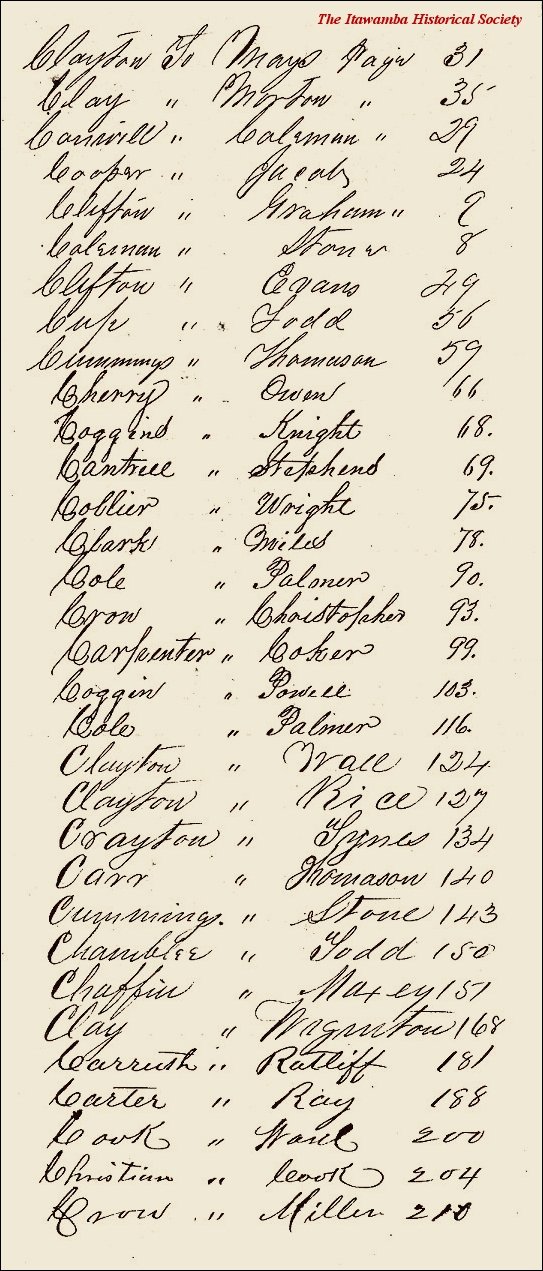 The Itawamba Historical Society
Clayton To Mays Page 31
Clay " Morton " 35
" Coleman " 29
Cooper " Jacobs 24
Clifton " Graham " 9
Coleman " Stone 8
Clifton " Evans 49
" Todd 56
Cummings " Thomason 59
Cherry " Owen 66
Coggins " Knight 68.
Cantrell " Stephens 69.
Collier " Wright 75.
Clark " Miles 78.
Cole " Palmer 90.
Crow " Christopher 93.
Carpenter " Coker 99.
Coggin " Powell 103.
Cole " Palmer 116.
Clayton " Wall 124
Clayton " Rice 127
Crayton " Tynes 134
Carr " Thomason 140
Cummings. " Stone 143
Chamblee " Todd 150
Chaffin " Maxey 151
Clay " 168
Carruth " Ratliff 181
Carter " Ray 188
Cook " 200
Christian " Cook 204
Crow " Miller 210